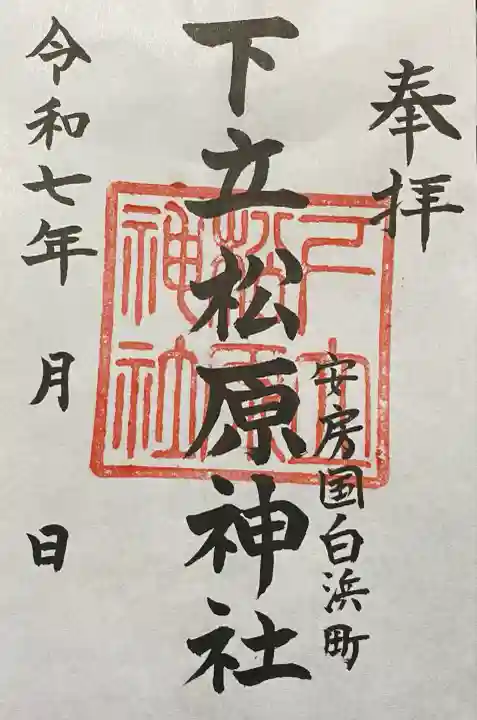 奉拝
安房国白浜町
下立松原神社
下立
松原
神社
令和七年 月 日